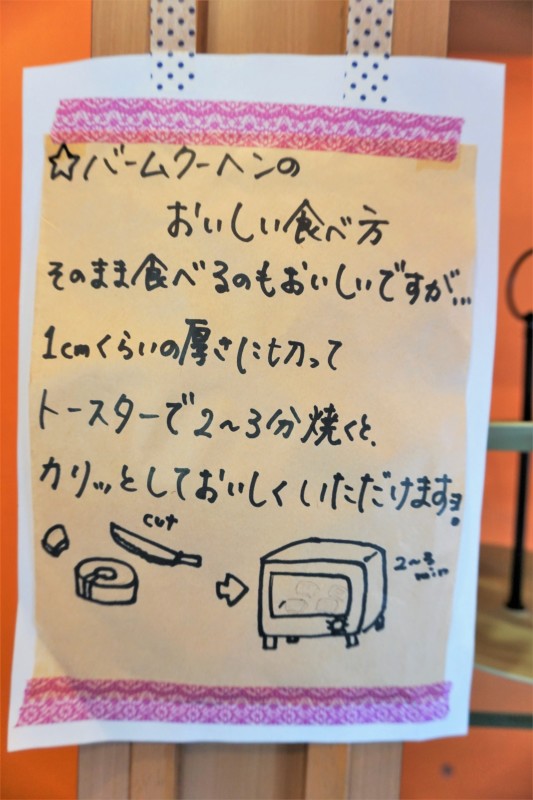 ☆バームクーヘンの
おいしい食べ方
そのまま食べるのもおいしいですが...
1cmくらいの厚さに切って
トースターで2〜3分焼くと、
カリッとしておいしくいただけますヨ!
cut
2〜3
min